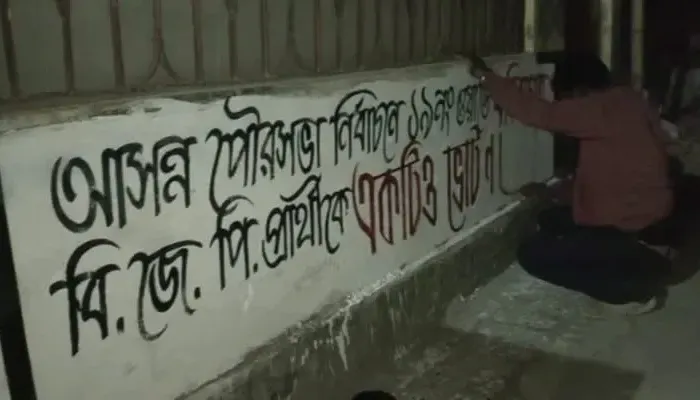 আসন্ন পৌরসভা নির্বাচনে ১৯নং ওয়ার্ডে
বি.জে.পি.প্রার্থীকে একটিও ভোট ন